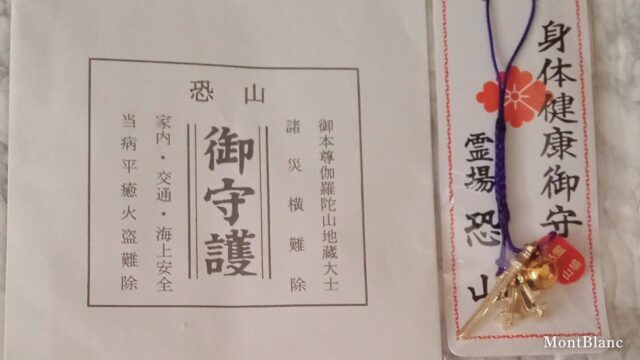 恐山
御本尊伽羅陀山地蔵大士
諸災横難除
御守護
家内・交通・海上安全
当病平癒火盗難除
身体健康御守
霊場恐山
MontBlanc